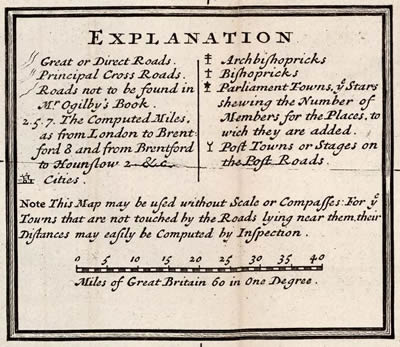 EXPLANATION
Great or Direct Roads.
Principal Cross Roads.
Roads not to be found in
Mr Ogilby's Book.
2.5.7. The Computed Miles,
as from London to Brent
ford 8 and from Brentford
to Hounslow 2. &c.
Cities.
Archbishopricks
Bishopricks
Parliament Towns, ye Stars
shewing the Number of
Members for the Places, to
wich they are added.
Post Towns or Stages on
the Post Roads.
Note This Map may be used without Scale or Compasses: For ye
Towns that are not touched by the Roads lying near them, their
Distances may easily be Computed by Inspection.
0 5 10 15 20 25 30 35 40
Miles of Great Britain 60 in One Degree.